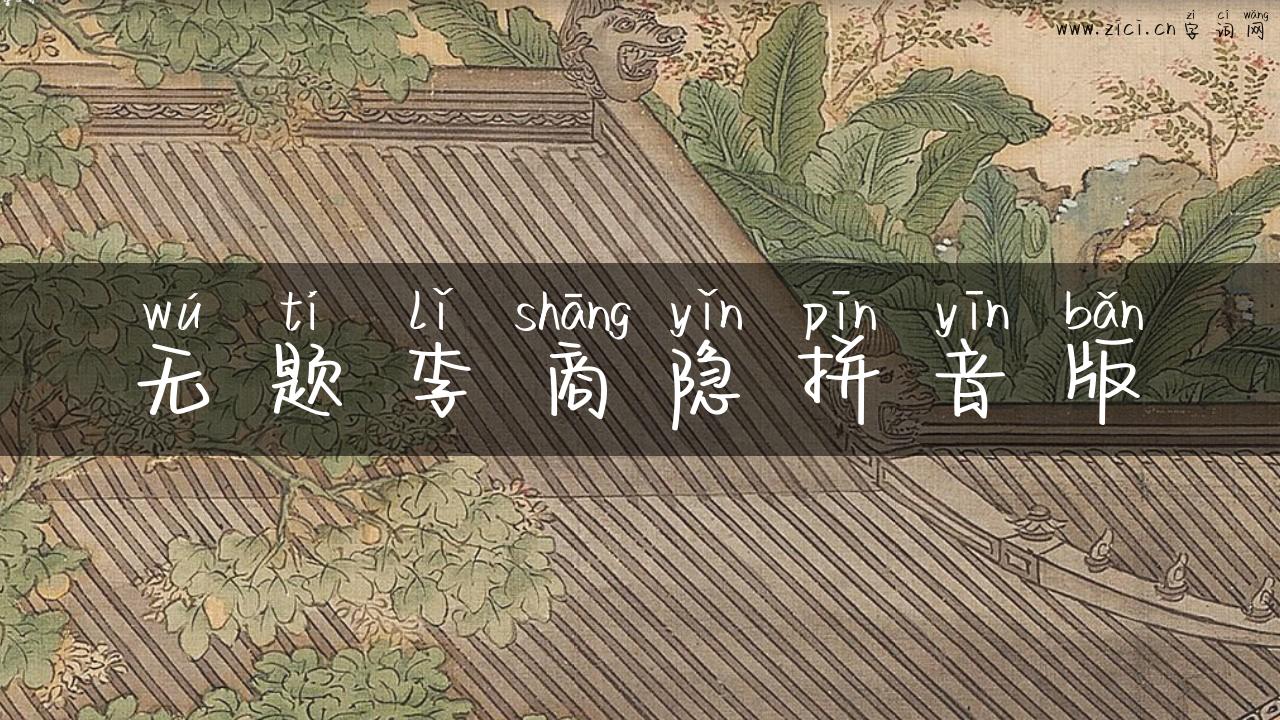 zì cí wǎng
www.zici.cn 字词网
wú tí lǐ shāng yǐn pīn yīn bǎn
无题李商隐拼音版